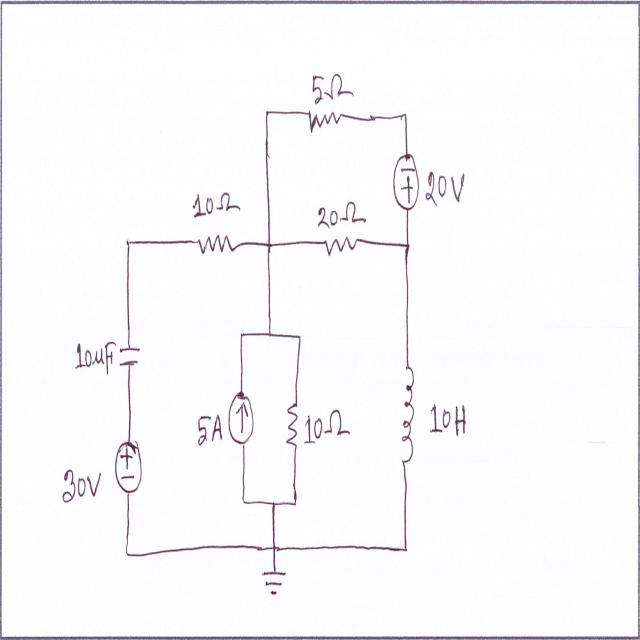 5Ω
20V
10Ω
20Ω
10µF
5A
10Ω
10H
30V